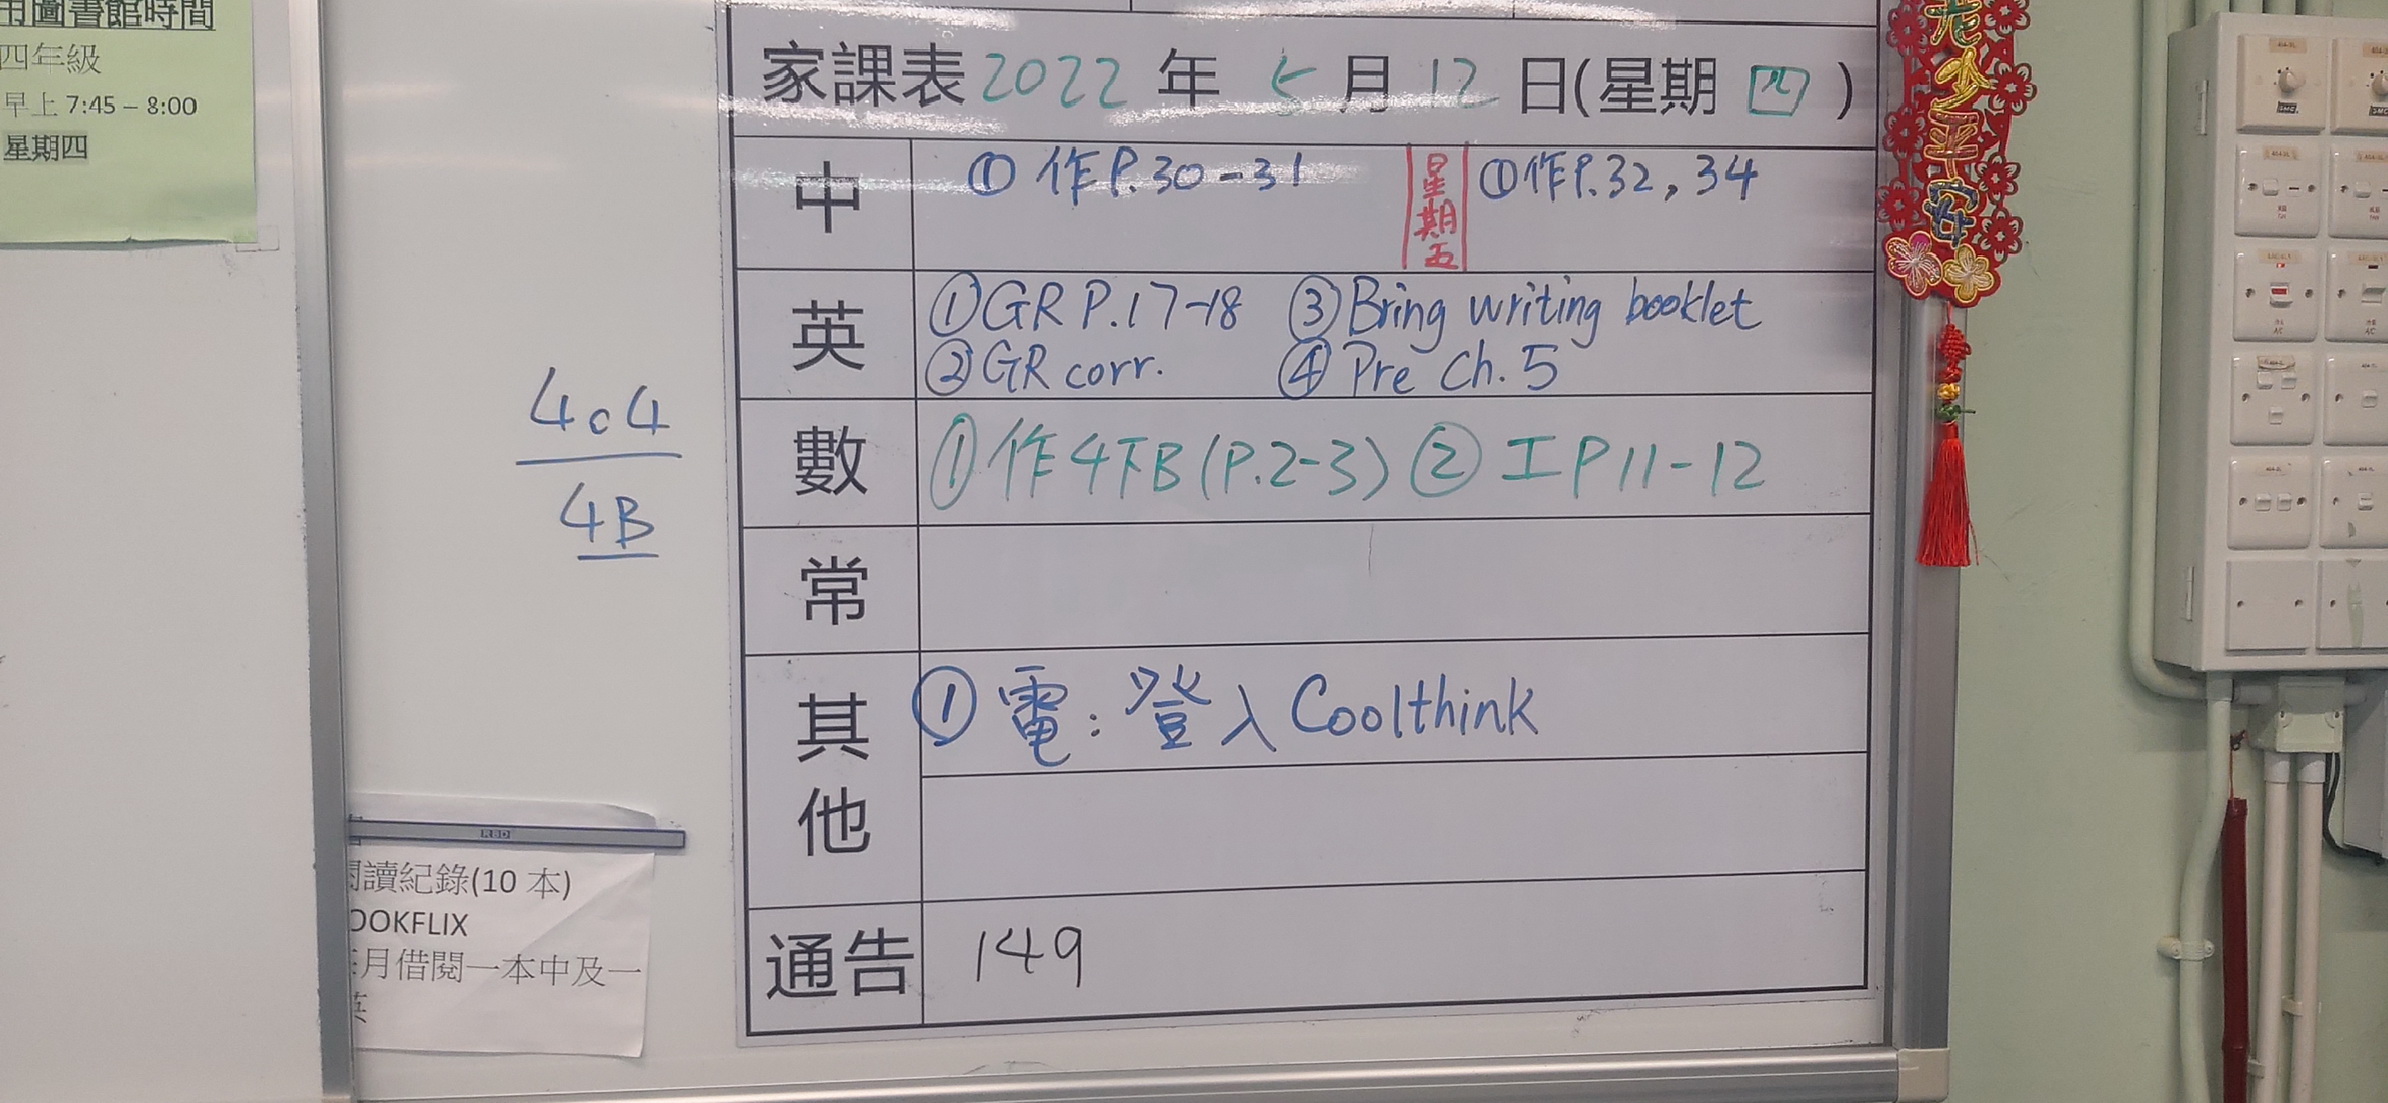 用圖書館時間
四年級
早上 7:45 – 8:00
星期四
家課表 2022 年 5 月 12 日(星期 四 )
中 ① 作P.30-31 星期五 ①作P.32, 34
英 ①GR P.17-18 ③Bring writing booklet
②GR corr. ④Pre Ch.5
數 ①作4下B(P.2-3) ② 工P11-12
常
其他 ① 電:登入Coolthink
通告 149
4c4
4B
閱讀紀錄(10 本)
OOKFLIX
月借閱一本中及一
英
老少平安